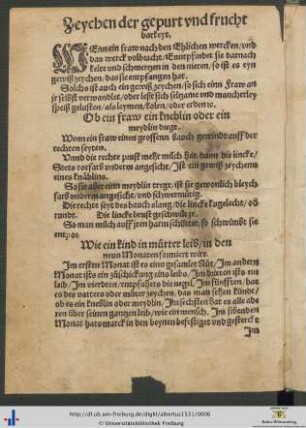 Zeychen der gepurt vnd frucht
barkeyt.
WEnn ein fraw nach den Ehlichen wercken/ vnd
das werck volbracht. Ennpfindet sie darnach
kelte vnd schmertzen in den nieren/ so ist es eyn
gewiß zeychen/ das sie empfangen hat.
Solchs ist auch ein gewiß zeychen/ so sich einn Fraw an
jr selbst verwandlet/ oder lüst sich seltzame vnd mancherley
speiß gelüsten/ als leymen/ kolen/ oder erden ꝛc.
Ob ein fraw ein kneblin oder ein
meydlin trege.
Wenn ein fraw einen grossenn Bauch gewindt auff der
rechten seyten.
Vnnd die rechte prust mehr milch hat dann die lincke/
Stets rotfarb vnderm angesicht/ Ist ein gewiß zeychenn
eines knäblins.
So sie aber einn meydlin tregt/ ist sie gewonlich bleych
farb vnderm angesicht/ vnd schwermütig.
Die rechte seyt des bauch elang/ die lincke kugelecht/ oder
rundt. Die lincke brust geschwürtze.
So man milch auff jrem harm schüttet/ so schwimbt sie
Wie ein kind in mütter leib/ in den
neuen Monaten formiert wirt.
Im ersten Monat ist es einn gesamlet Blůt/ Im andern
Monat ists ein züschickung eins leibs/ Im dritten ists ein
leib/ Im vierdten/ entpfahets die negel. Im fünfften/ hat
es des vatters oder můter zeychen/ das man sehen kündt/
ob es ein kneblin oder meydlin. Im sechsten hat es alle ade
ren über seinen gantzen leib/ wie ein mensch. Im sibenden
Monat hats marck in den beynen befestiget vnd gesterckt
Im
http://dl.ub.uni-freiburg.de/diglit/albertus1531/0006
© Universitätsbibliothek Freiburg
Baden-Württemberg